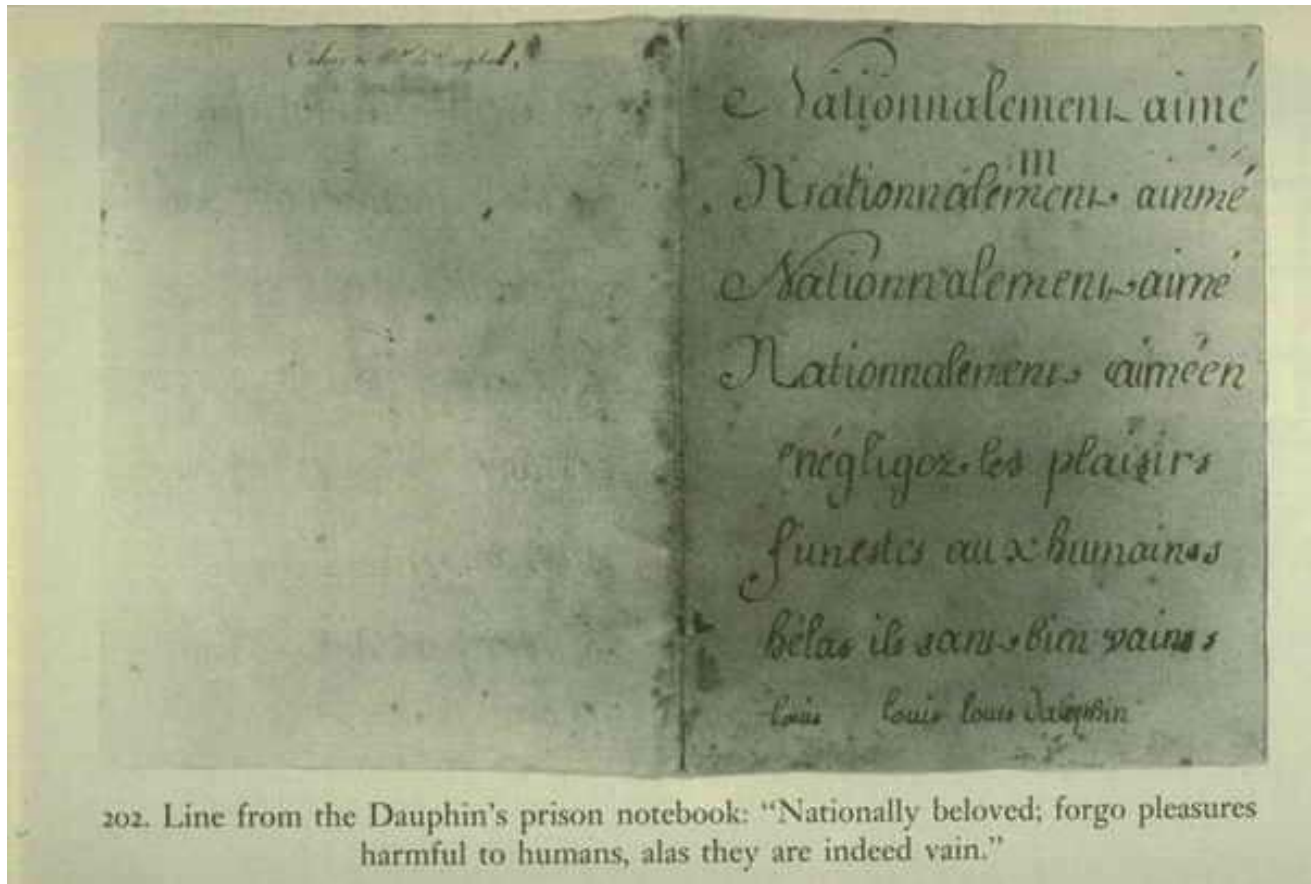 Nationnalement aimé
m
Nrationnalement aimmé
Nationnvalement aimé
Nationnalement aiméen
négligez les plaisirs
funestes aux humainss
hélas ils sant bien vainss
louis louis louis dauphin
202. Line from the Dauphin's prison notebook: “Nationally beloved; forgo pleasures
harmful to humans, alas they are indeed vain.”